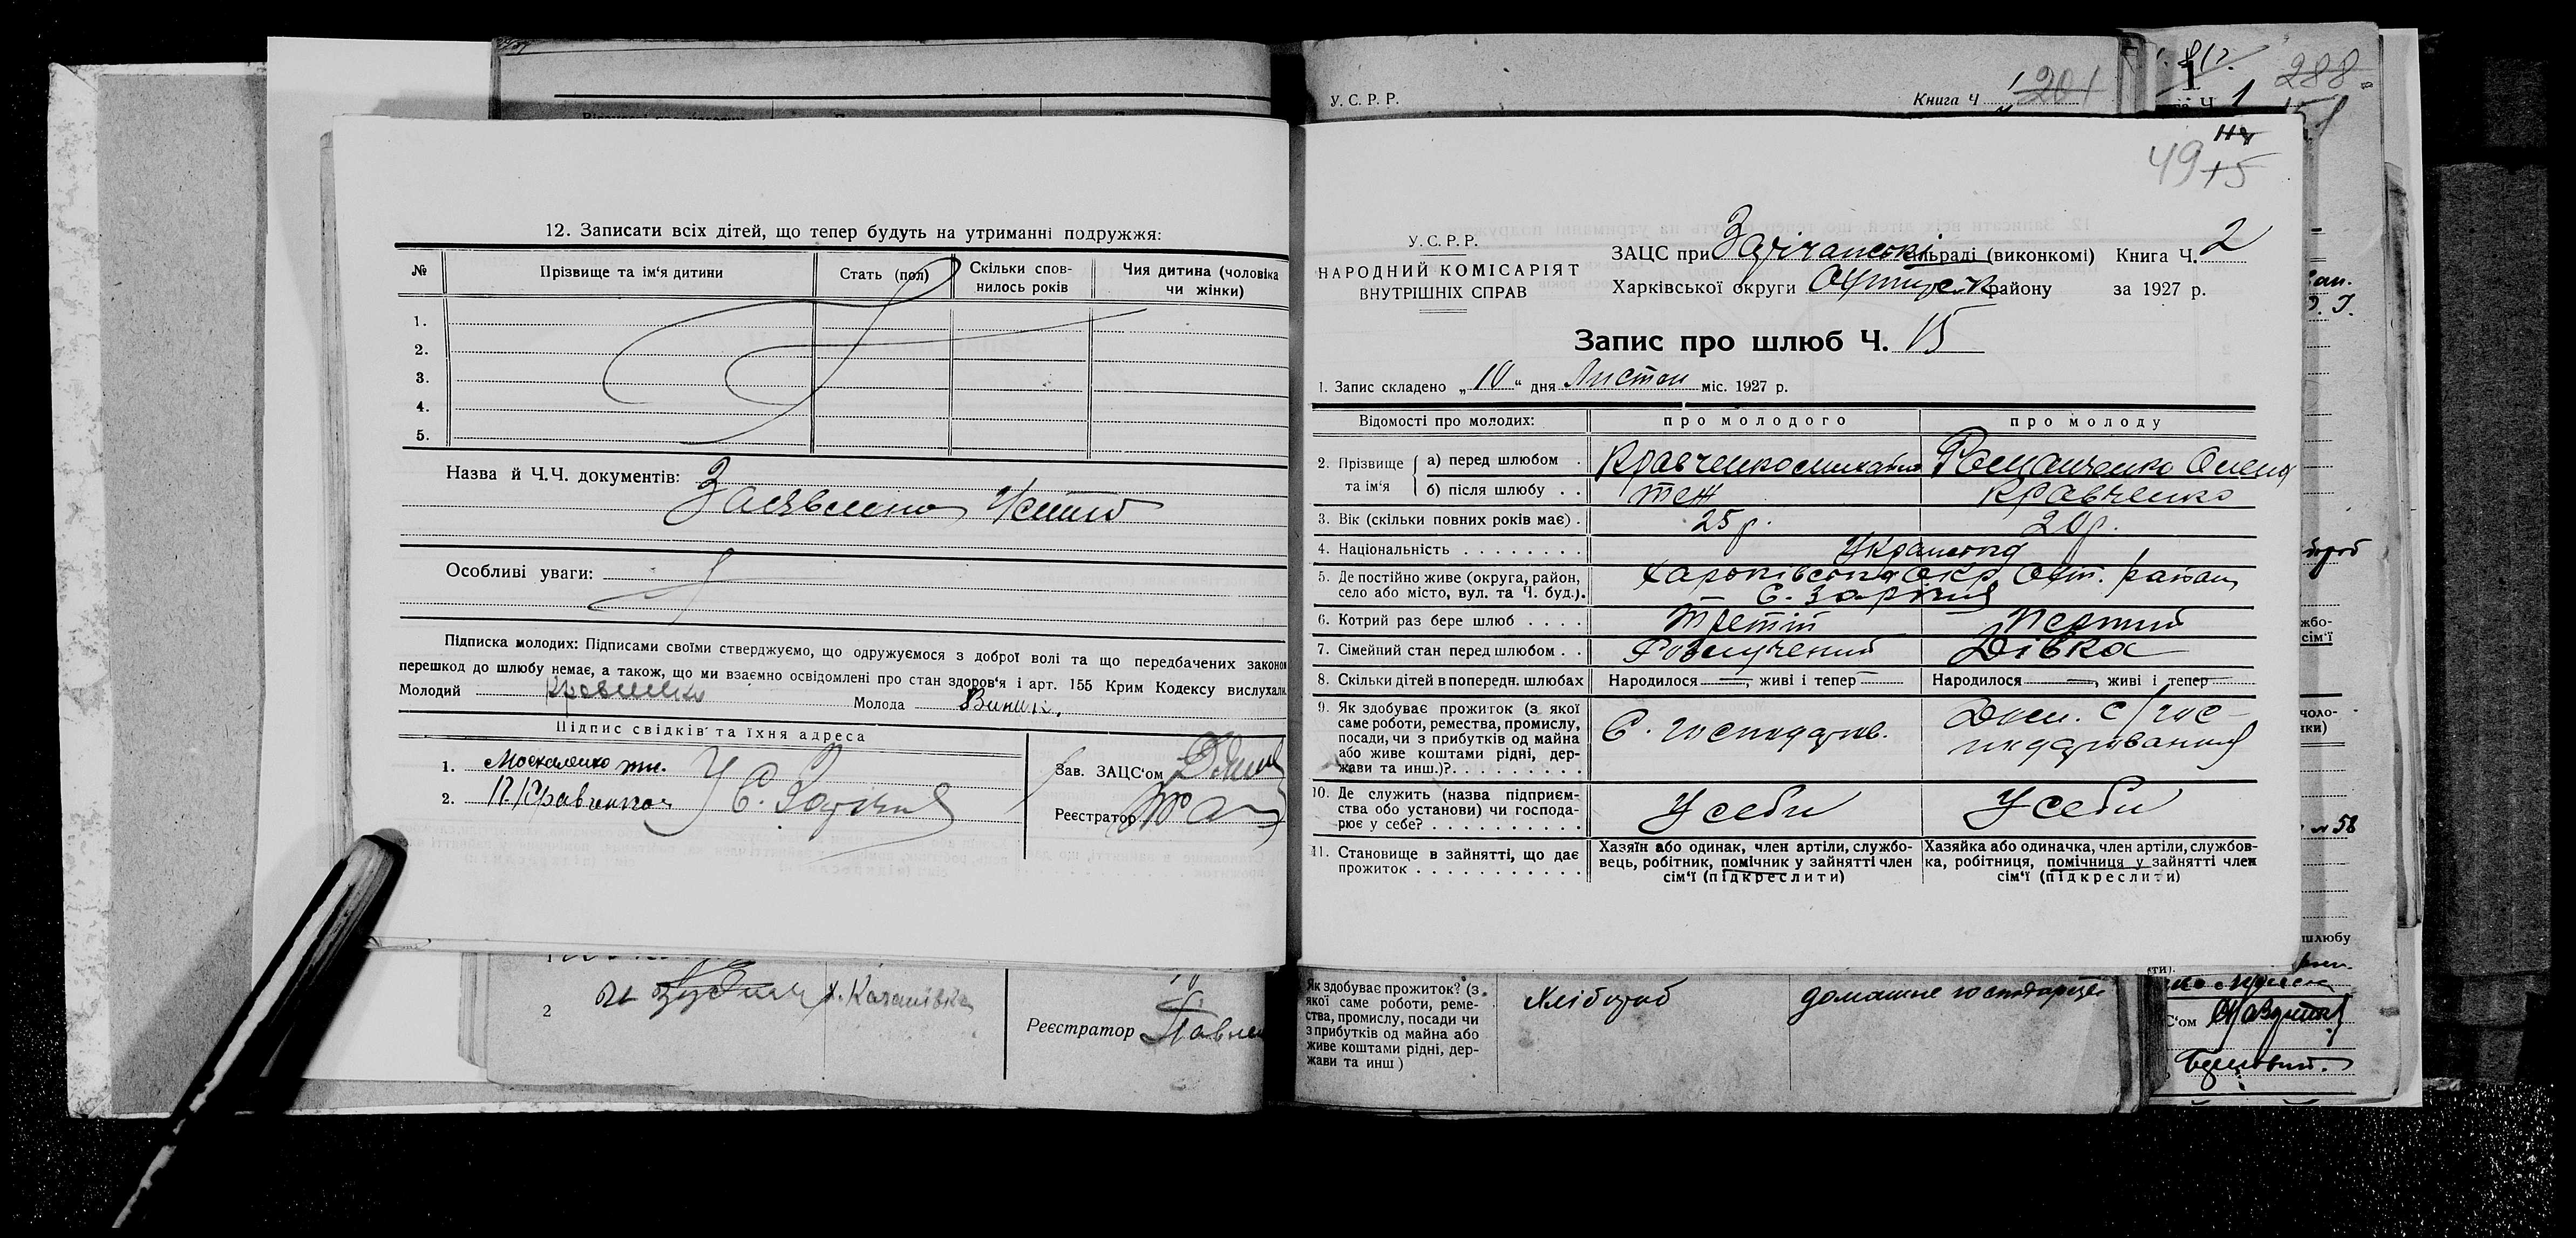 У. С. Р. Р.
Книга Ч 201
288
1
49 15
12. Записати всіх дітей, що тепер будуть на утриманні подружжя:
№
Прізвище та ім'я дитини
Стать (пол)
Скільки сповнилось років
Чия дитина (чоловіка чи жінки)
1.
2.
3.
4.
5.
Назва й Ч.Ч. документів:
Заявлено
Особливі уваги:
Підписка молодих: Підписами своїми стверджуємо, що одружуємося з доброї волі та що передбачених законом
перешкод до шлюбу немає, а також, що ми взаємно освідомлені про стан здоров'я і арт. 155 Крим Кодексу вислухали.
Молодий Кравченко Молода
Підпис свідків та їхня адреса
1. Москаленко
2. П. Кравченко
С. Зарічча
Зав. ЗАЦС'ом
Реєстратор
2
х. Качанівка
Реєстратор
У. С. Р. Р.
НАРОДНИЙ КОМІСАРІЯТ
ВНУТРІШНІХ СПРАВ
ЗАЦС при Зарічанські сільраді (виконкомі) Книга Ч. 2
Харківської округи Охтирск району за 1927 р.
Запис про шлюб Ч. 15
1. Запис складено „10" дня Листоп міс. 1927 р.
Відомості про молодих:
про молодого
про молоду
2. Прізвище та ім'я
а) перед шлюбом .
Кравченко Михайло
Романченко Олена
б) після шлюбу . .
теж
Кравченко
3. Вік (скільки повних років має) .
25 р.
20 р.
4. Національність . . . . . . . .
Українська
5. Де постійно живе (округа, район,
село або місто, вул. та Ч. буд.).
Харківська окр. Охт. район
С. Заріччя
6. Котрий раз бере шлюб . . . .
Третій
Перший
7. Сімейний стан перед шлюбом . .
Розлучений
Дівка
8. Скільки дітей в попередн. шлюбах
Народилося —, живі і тепер
Народилося —, живі і тепер
9. Як здобуває прожиток (з якої
саме роботи, ремества, промислу,
посади, чи з прибутків од майна
або живе коштами рідні, держави та инш.)?. . . . . . . . .
С. господарів.
Дом. с/господарювання
10. Де служить (назва підприємства обо установи) чи господарює у себе? . . . . . . . . . . .
У себе
У себе
11. Становище в зайнятті, що дає
прожиток . . . . . . . . . . . .
Хазяїн або одинак, член артіли, службовець, робітник, помічник у зайнятті член
сім'ї (підкреслити)
Хазяйка або одиначка, член артіли, службовка, робітниця, помічниця у зайнятті член
сім'ї (підкреслити)
Як здобуває прожиток? (з
якої саме роботи, ремества, промислу, посади чи
з прибутків од майна або
живе коштами рідні, держави та инш )
Хлібороб
домашне господарство
№ 58
шлюбу